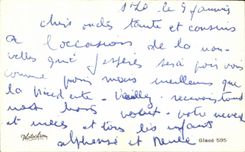 St Lô le 9 janvier
chers oncles tante et cousins
a l'occasion de la nou-
velles que j'espères sera pour vous
comme pour nous meilleure que
la précédente veuillez recevoir tous
nos bons votre neveu
et nièces et tous les enfants
alphonse et
Glace 505